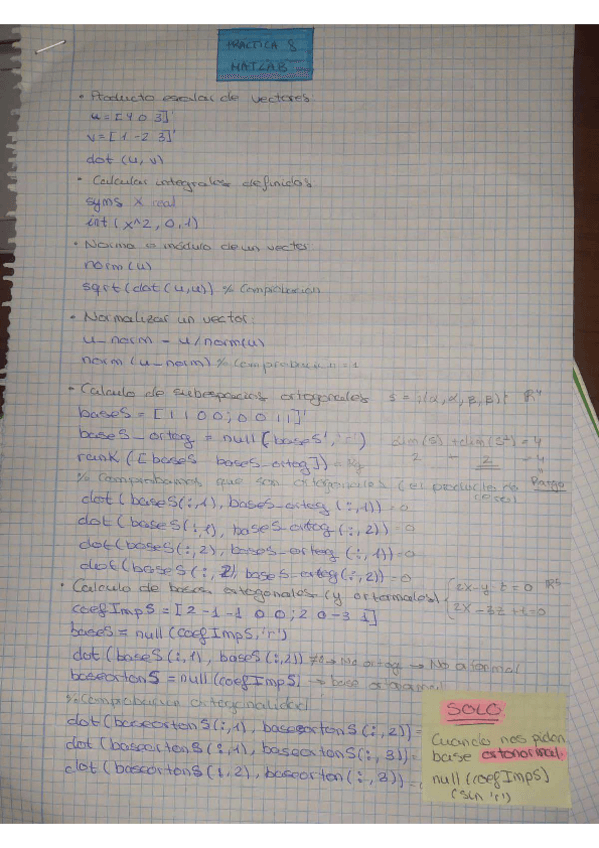 PRACTICA 8
MATLAB
• Producto escalar de vectores
u=[4 0 3]'
v=[1 -2 3]'
dot (u,v)
• Calcular integrales definidas
syms x real
int (x^2, 0,1)
• Norma o módulo de un vector
norm(u)
sqrt(dot(u,u)) % Comprobación
• Normalizar un vector
u_norm = u/norm(u)
norm (u_norm) % Comprobación = 1
• Calculo de subespacios ortogonales S = {(α, α, β, β)} R⁴
baseS = [1 1 0 0; 0 0 1 1]'
baseS_ortog = null (baseS', 'r') dim(S) + dim(S⊥) = 4
rank ([baseS baseS_ortog]) = 4 2 2 4
% Comprobamos que son ortogonales (el producto da
dot (baseS(:,1), baseS_ortog (:,1)) = 0
dot (baseS(:,1), baseS_ortog (:,2)) = 0
dot (baseS(:,2), baseS_ortog (:,1)) = 0
dot (baseS(:,2), baseS_ortog(:,2)) = 0
• Calculo de bases ortogonales (y ortonormales) R⁵
2x-y-z=0
2x-3z+t=0
coefImpS = [2 -1 -1 0 0; 2 0 -3 1]
baseS = null (coefImpS, 'r')
dot (baseS(:,1), baseS(:,2)) No ortog → No ortonormal
baseortonS = null (coefImpS) → base ortonormal
% Comprobacion ortogonalidad
dot (baseortonS(:,1), baseortonS(:,2)) =
dot (baseortonS(:,1), baseortonS(:,3)) =
dot (baseortonS(:,2), baseorton(:,3)) =
SOLO
Cuando nos pidan
base ortonormal
null (coefImpS)
(sin 'r')